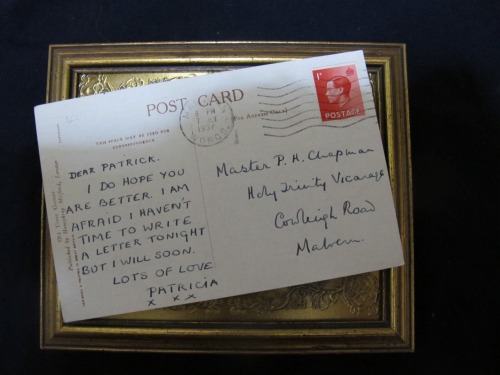 POST CARD
THIS SPACE MAY BE USED FOR
CORRESPONDENCE
For Address Only
DEAR PATRICK.
I DO HOPE YOU
ARE BETTER. I AM
AFRAID I HAVEN'T
TIME TO WRITE
A LETTER TONIGHT
BUT I WILL SOON.
LOTS OF LOVE
PATRICIA
x x x
8 PM
1937
1D
POSTAGE
Master P. H. Chapman
Holy Trinity Vicarage
Cowleigh Road
Malvern.